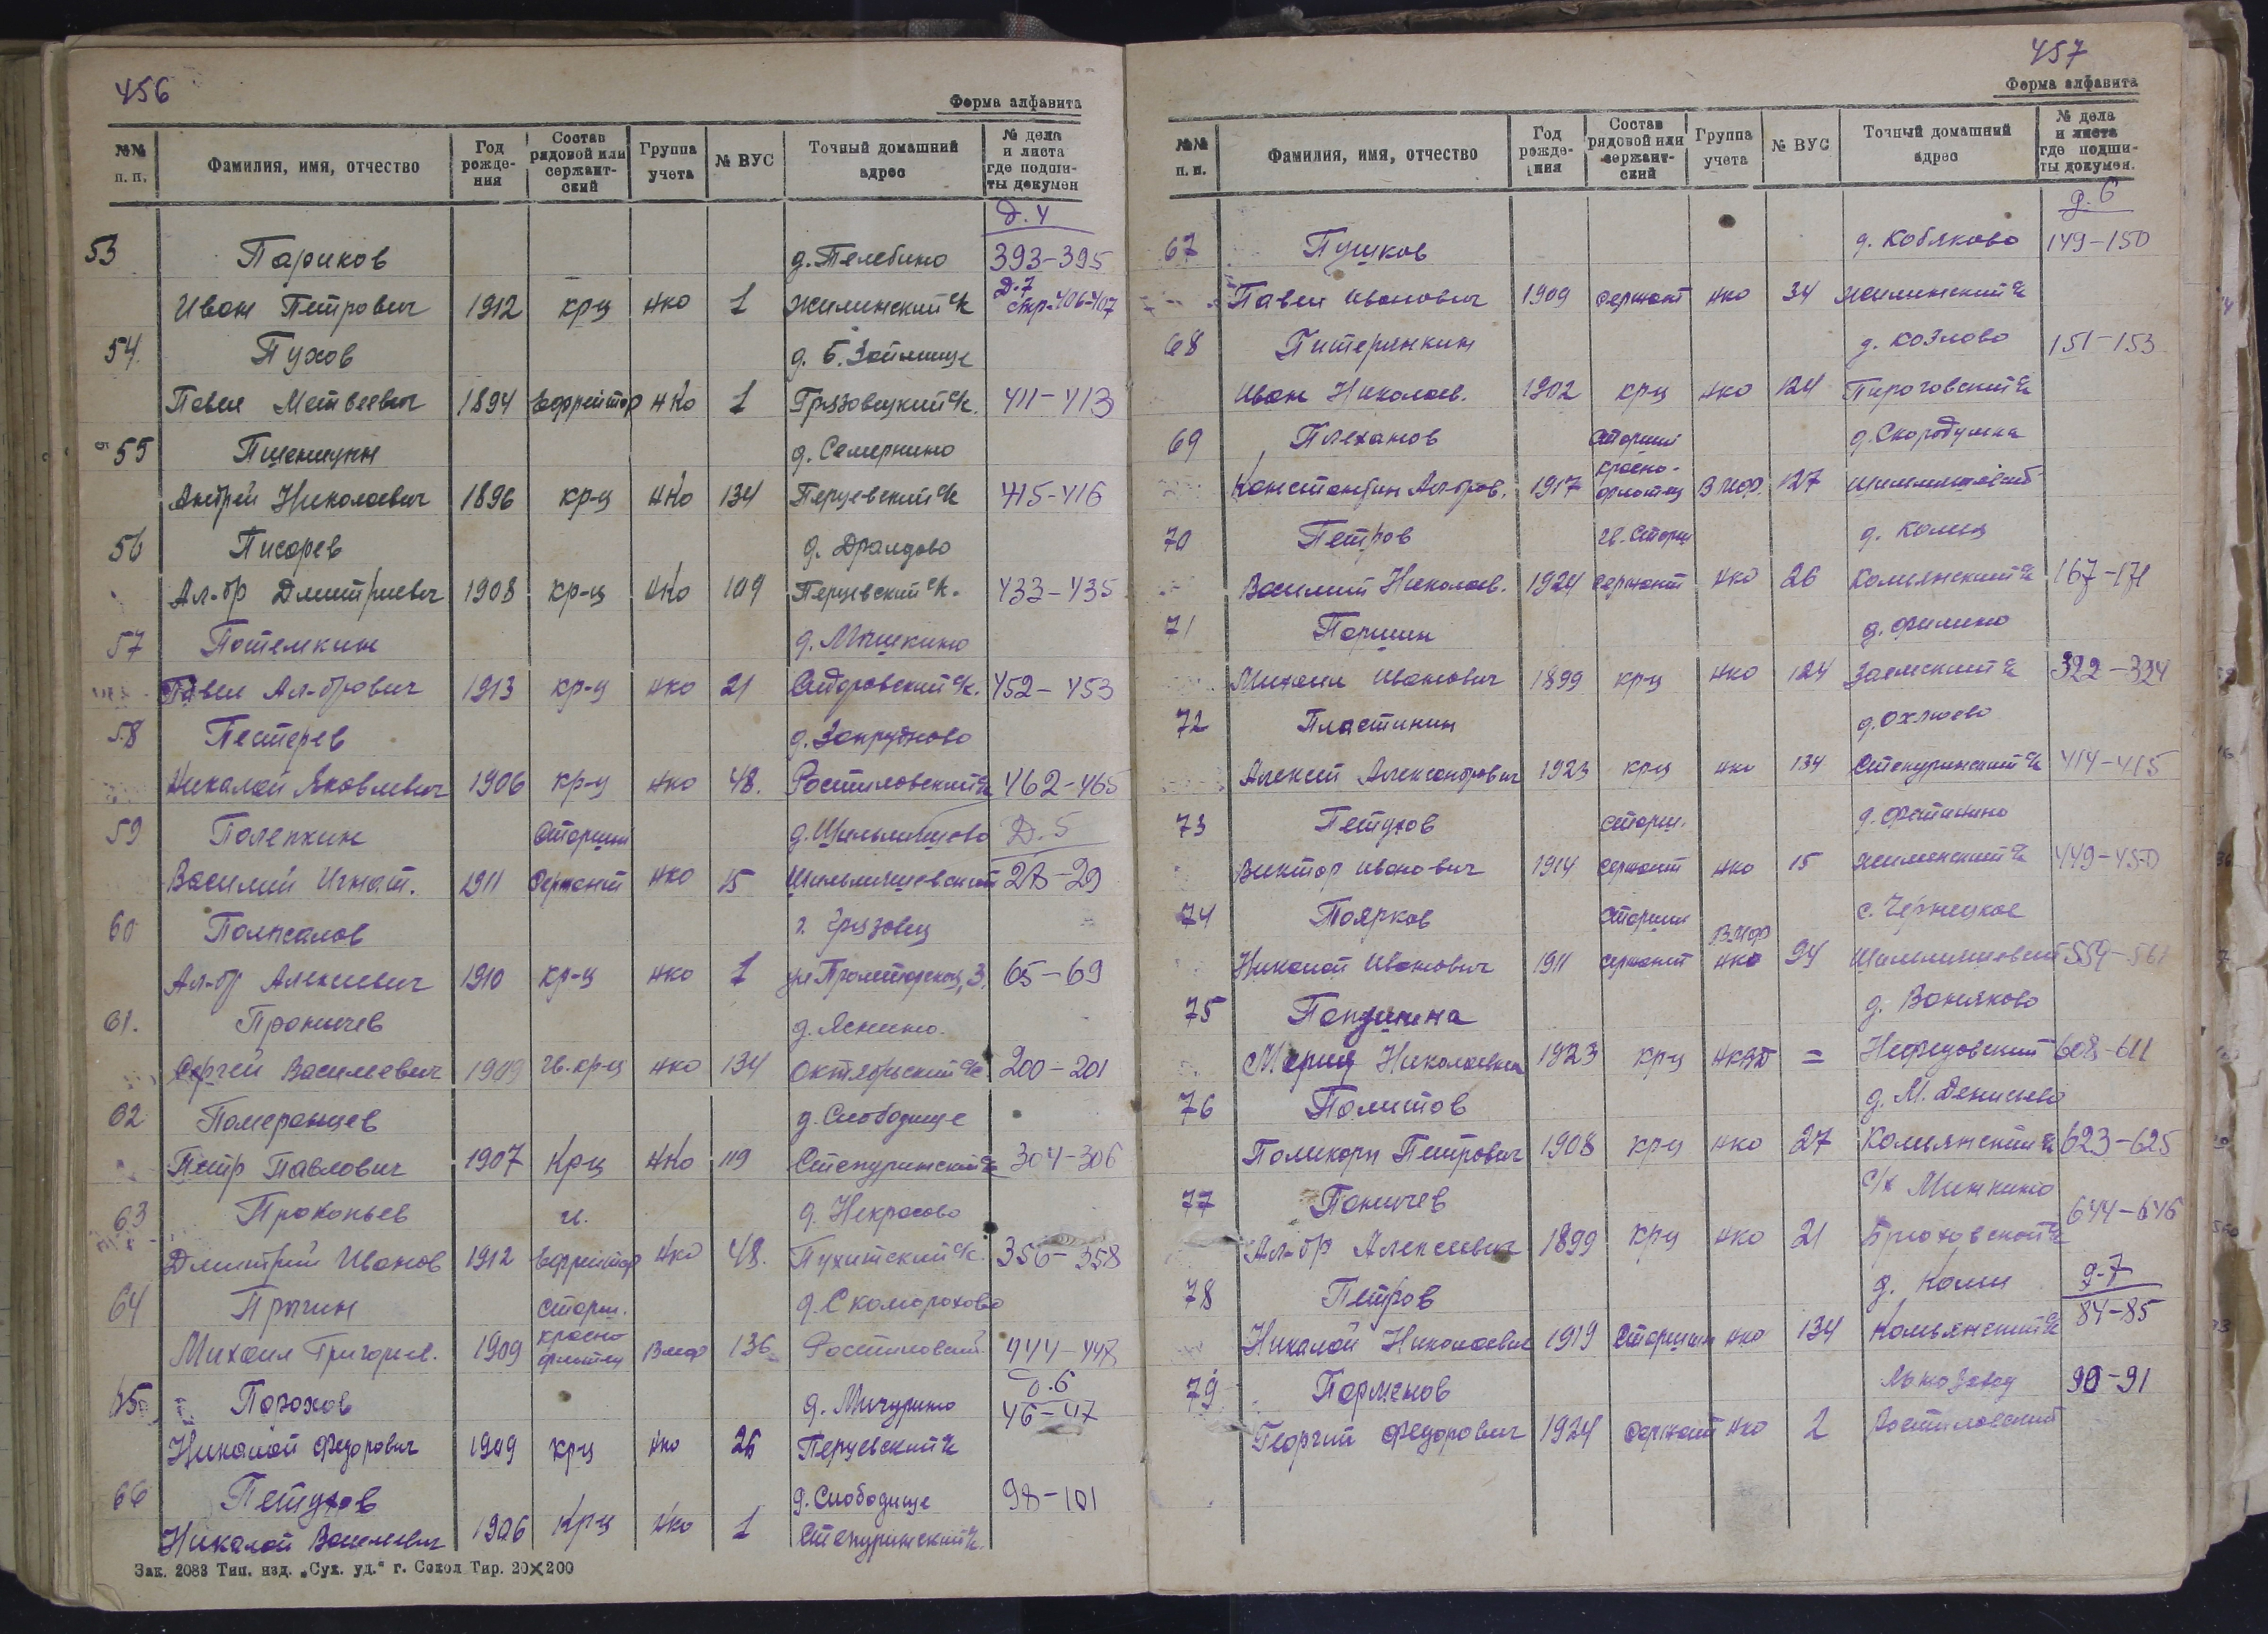 456
Форма алфавита
№№ п. п. Фамилия, имя, отчество Год рожде-ния Состав рядовой или сержант-ский Группа учета № ВУС Точный домашний адрес № дела и листа где подши-ты докумен
д. 4
53 Париков д. Телебино 393-395
Иван Петрович 1912 кр-ц нко 1 Жилинский с/с Д.7 стр. 406-407
54. Пухов д. Б. Займище
Павел Матвеевич 1894 Ефрейтор нко 1 Грязовецкий с/с. 411-413
55 Пшеницын д. Семернино
Андрей Николаевич 1896 кр-ц нко 134 Перцевский с/с 415-416
56 Писарев д. Драндово
Ал-др Дмитриевич 1908 кр-ц нко 109 Перцевский с/с. 433-435
57 Потемкин д. Мышкино
Павел Ал-дрович 1913 кр-ц нко 21 Сидоровский с/с. 452-453
58 Пестерев д. Запрудново
Николай Яковлевич 1906 кр-ц нко 48. Ростиловский с/с 462-465
59 Полепкин Старши д. Шильмяшово Д. 5
Василий Игнат. 1911 Сержант нко 15 Шильмяшевский 28-29
60 Полысалов г. Грязовец
Ал-др Алексеевич 1910 кр-ц нко 1 ул Пролетарская, 3. 65-69
61. Проничев д. Яснино.
Сергей Васильевич 1909 гв. кр-ц нко 134 Октябрьский с/с 200-201
62 Померанцев д. Слободище
Петр Павлович 1907 Кр-ц нко 119 Степуринский с/с 304-306
63 Прокопьев гв. д. Некрасово
Дмитрий Иванов 1912 Ефрейтор нко 48. Пухитский с/с. 356-358
64 Прыгин старш. д. Скоморохово
Михаил Григорьев. 1909 красно флотец Вмф 136 Ростиловский 444-447
65 Порохов д. Мичурино д. 6 46-47
Николай Федорович 1909 кр-ц нко 26 Перцевский с/с
66 Петухов д. Слободище 98-101
Николай Васильевич 1906 Кр-ц нко 1 Степуринский с/с.
Зак. 2083 Тип. изд. „Сух. уд.“ г. Сокол Тир. 20×200
457
Форма алфавита
№№ п. п. Фамилия, имя, отчество Год рожде-ния Состав рядовой или сержант-ский Группа учета № ВУС Точный домашний адрес № дела и листа где подши-ты докумен.
д. 6
67 Пушков д. Кобяково 149-150
Павел Иванович 1909 сержант нко 34 Жилинский с/с
68 Питерянкин д. Козлово 151-153
Иван Николаев. 1902 кр-ц нко 124 Пироговский с/с
69 Плеханов Старший д. Скородумка
Константин Ал-дров. 1917 красно-флотец Вмф. 127
70 Петров гв. Старш д. Колиц
Василий Николаев. 1924 сержант нко 26 Комьянский с/с 167-171
71 Поршин д. Филино
Михаил Иванович 1899 кр-ц нко 124 Заемский с/с 322-324
72 Пластинин д. Охлюево
Алексей Александрович 1923 кр-ц нко 134 Степуринский с/с 414-415
73 Петухов старш. д. Фетинино
Виктор Иванович 1914 Сержант нко 15 Жилинский с/с 449-450
74 Поярков Старши с. Чернецкое
Николай Иванович 1911 сержант Вмф нко 94 Шильмяшевский 559-561
75 Попдина д. Воняково
Мария Николаевна 1923 кр-ц НКВД = Нефедовский 608-611
76 Политов д. М. Денисьево
Поликарп Петрович 1908 кр-ц нко 27 Комьянский с/с 623-625
77 Поничев с/х Минкино
Ал-др Алексеевич 1899 кр-ц нко 21 644-646
78 Петров д. Колиц д. 7
Николай Николаевич 1919 Старшин нко 134 Комьянский с/с 84-85
79 Парменов Льнозавод 90-91
Георгий Федорович 1924 сержант нко 2 Ростиловский